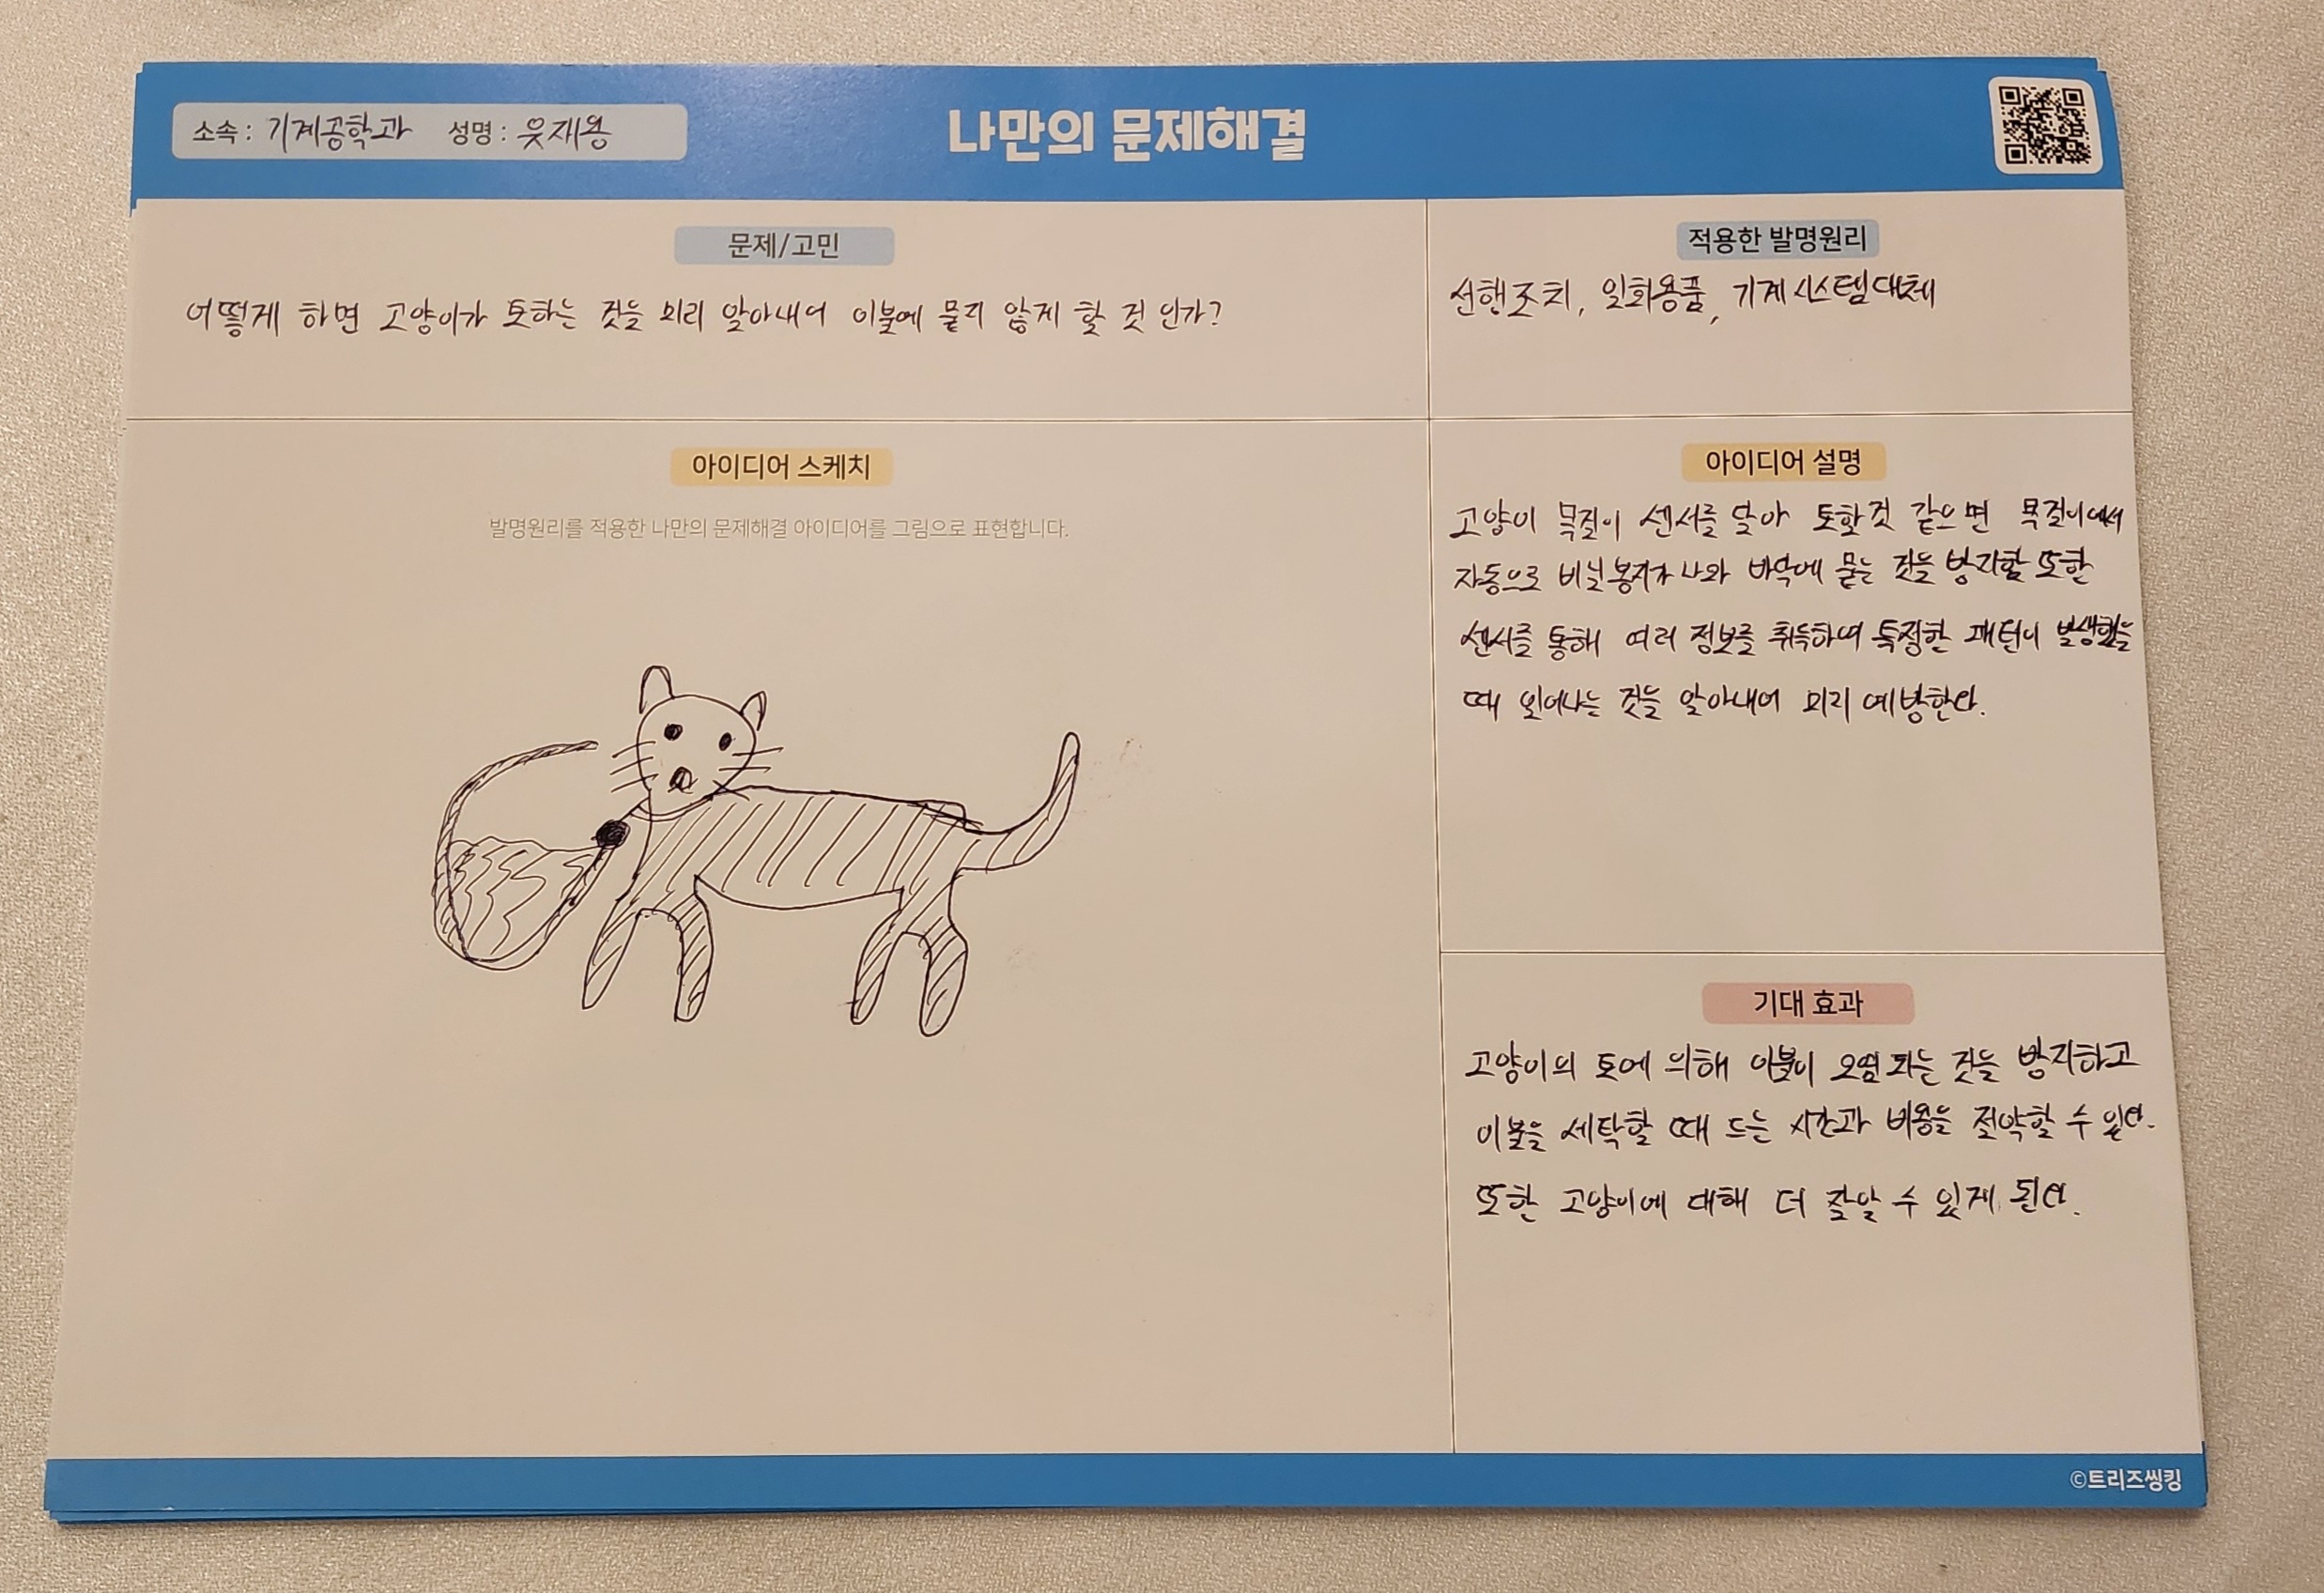 소속 : 기계공학과 성명 : 웃재용
나만의 문제해결
문제/고민
어떻게 하면 고양이가 토하는 것을 미리 알아내어 이불에 묻지 않게 할 것 인가?
적용한 발명원리
선행조치, 일회용품, 기계시스템대체
아이디어 스케치
발명원리를 적용한 나만의 문제해결 아이디어를 그림으로 표현합니다.
아이디어 설명
고양이 목걸이 센서를 달아 토할것 같으면 목걸이에서
자동으로 비닐봉지가 나와 바닥에 묻는 것을 방지함 또한
센서를 통해 여러 정보를 취득하며 특정한 패턴이 발생했을
때 일어나는 것을 알아내어 미리 예방한다.
기대 효과
고양이의 토에 의해 이불이 오염되는 것을 방지하고
이불을 세탁할 때 드는 시간과 비용을 절약할 수 있다.
또한 고양이에 대해 더 잘알 수 있게 된다.
©트리즈씽킹